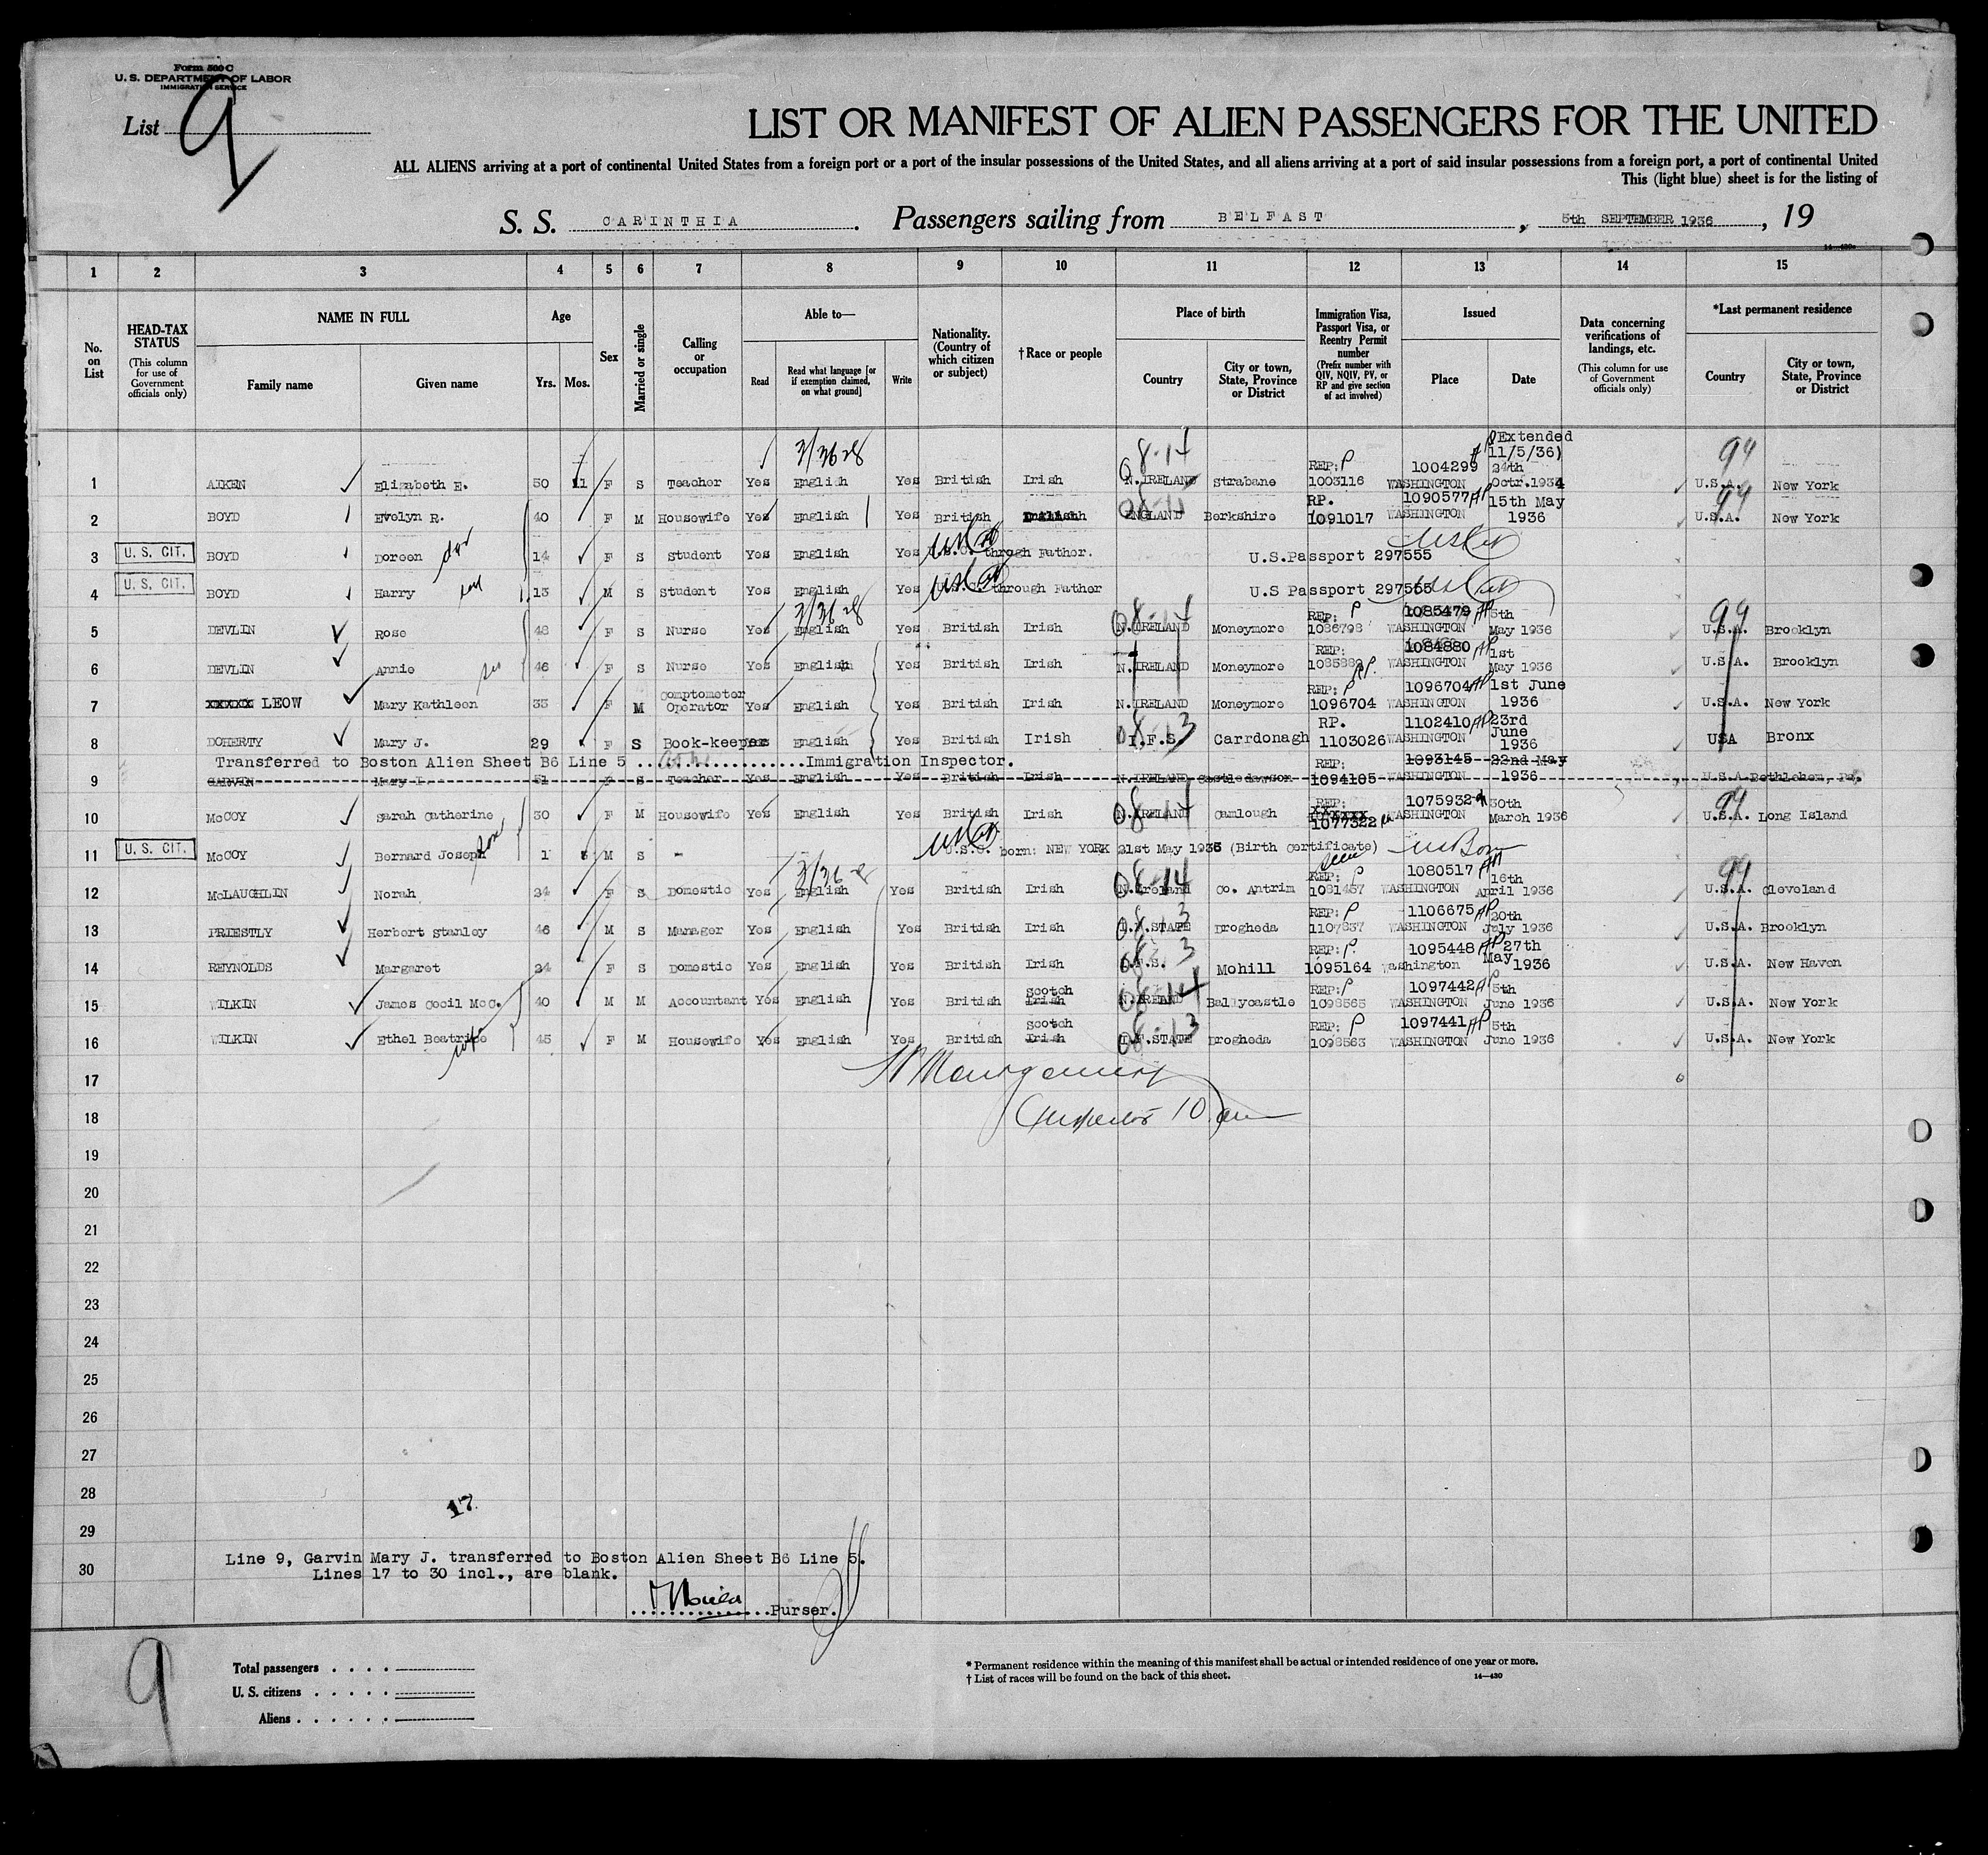 Form 500 C
U. S. DEPARTMENT OF LABOR
IMMIGRATION SERVICE
List 9
LIST OR MANIFEST OF ALIEN PASSENGERS FOR THE UNITED
ALL ALIENS arriving at a port of continental United States from a foreign port or a port of the insular possessions of the United States, and all aliens arriving at a port of said insular possessions from a foreign port, a port of continental United
This (light blue) sheet is for the listing of
S. S. CARINTHIA. Passengers sailing from BELFAST, 5th SEPTEMBER 1936, 19
14—430
1 2 3 4 5 6 7 8 9 10 11 12 13 14 15
No. on List
HEAD-TAX STATUS (This column for use of Government officials only)
NAME IN FULL Family name Given name
Age Yrs. Mos.
Sex
Married or single
Calling or occupation
Able to— Read Read what language [or if exemption claimed, on what ground] Write
Nationality. (Country of which citizen or subject)
†Race or people
Place of birth Country City or town, State, Province or District
Immigration Visa, Passport Visa, or Reentry Permit number (Prefix number with QIV, NQIV, PV, or RP and give section of act involved)
Issued Place Date
Data concerning verifications of landings, etc. (This column for use of Government officials only)
*Last permanent residence Country City or town, State, Province or District
1 AIKEN Elizabeth E. 50 11 F S Teacher Yes English Yes British Irish N. IRELAND Strabane REP: P 1003116 1004299 WASHINGTON 24th Octr. 1934 (Extended 11/5/36) 99 U.S.A. New York
2 BOYD Evelyn R. 40 F M Housewife Yes English Yes British English ENGLAND Berkshire RP. 1091017 1090577 WASHINGTON 15th May 1936 99 U.S.A. New York
3 U. S. CIT. BOYD Doreen 14 F S Student Yes English Yes U.S.C. throgh Father. U.S.Passport 297555
4 U. S. CIT. BOYD Harry 13 M S Student Yes English Yes U.S.C. through Father U.S Passport 297555
5 DEVLIN Rose 48 F S Nurse Yes English Yes British Irish N. IRELAND Moneymore REP: P 1086798 1085479 WASHINGTON 5th May 1936 99 U.S.A. Brooklyn
6 DEVLIN Annie 46 F S Nurse Yes English Yes British Irish N. IRELAND Moneymore REP: 1085882 1084880 WASHINGTON 1st May 1936 U.S.A. Brooklyn
7 XXXXX LEOW Mary Kathleen 33 F M Comptometer Operator Yes English Yes British Irish N. IRELAND Moneymore REP: P 1096704 1096704 WASHINGTON 1st June 1936 U.S.A. New York
8 DOHERTY Mary J. 29 F S Book-keeper Yes English Yes British Irish I.F.S. Carrdonagh RP. 1103026 1102410 WASHINGTON 23rd June 1936 USA Bronx
Transferred to Boston Alien Sheet B6 Line 5 ....................Immigration Inspector.
9 GARVIN Mary I 51 F S Teacher Yes English Yes British Irish N. IRELAND Castledawson REP: 1094105 1093145 WASHINGTON 22nd May 1936 U.S.A. Bethlehem, Pa.
10 McCOY Sarah Catherine 30 F M Housewife Yes English Yes British Irish N. IRELAND Camlough REP: 1077322 1075932 WASHINGTON 30th March 1936 99 U.S.A. Long Island
11 U. S. CIT. McCOY Bernard Joseph 1 M S - U.S.C. born: NEW YORK 21st May 1935 (Birth Certificate)
12 McLAUGHLIN Norah 24 F S Domestic Yes English Yes British Irish N. Ireland Co. Antrim REP: P 1081437 1080517 WASHINGTON 16th April 1936 99 U.S.A. Cleveland
13 PRIESTLY Herbert Stanley 46 M S Manager Yes English Yes British Irish I.F.STATE Drogheda REP: P 1107837 1106675 WASHINGTON 20th July 1936 U.S.A. Brooklyn
14 REYNOLDS Margaret 24 F S Domestic Yes English Yes British Irish I.F.S. Mohill REP: P. 1095164 1095448 Washington 27th May 1936 U.S.A. New Haven
15 WILKIN James Cecil McC. 40 M M Accountant Yes English Yes British Scotch Irish N. IRELAND Ballycastle REP: P 1098565 1097442 WASHINGTON 5th June 1936 U.S.A. New York
16 WILKIN Ethel Beatrice wife 45 F M Housewife Yes English Yes British Scotch Irish I.F.STATE Drogheda REP: P 1098563 1097441 WASHINGTON 5th June 1936 U.S.A. New York
17 Montgomery
18 Inspector 10
19
20
21
22
23
24
25
26
27
28
17
29
30 Line 9, Garvin Mary J. transferred to Boston Alien Sheet B6 Line 5.
Lines 17 to 30 incl., are blank.
................Purser.
9
Total passengers . . . .
U. S. citizens . . . . .
Aliens . . . . . .
* Permanent residence within the meaning of this manifest shall be actual or intended residence of one year or more.
† List of races will be found on the back of this sheet. 14—430